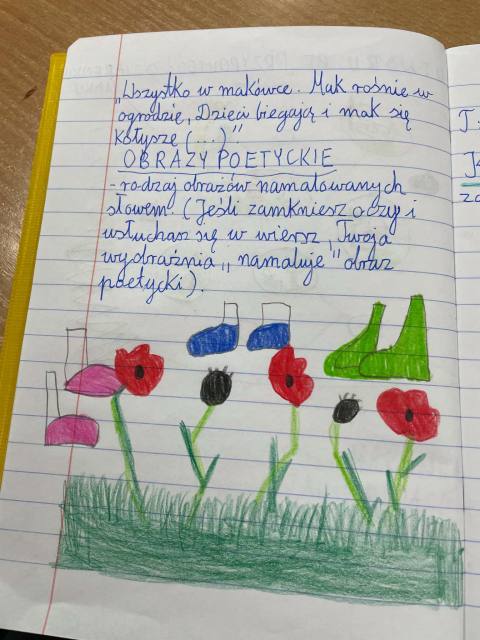 „Wszystko w makówce. Mak rośnie w
ogrodzie, Dzieci biegają i mak się
kołysze (...)”.
OBRAZY POETYCKIE
- rodzaj obrazów namalowanych
słowem. (Jeśli zamkniesz oczy i
wsłuchasz się w wiersz, Twoja
wyobraźnia „namaluje” obraz
poetycki).